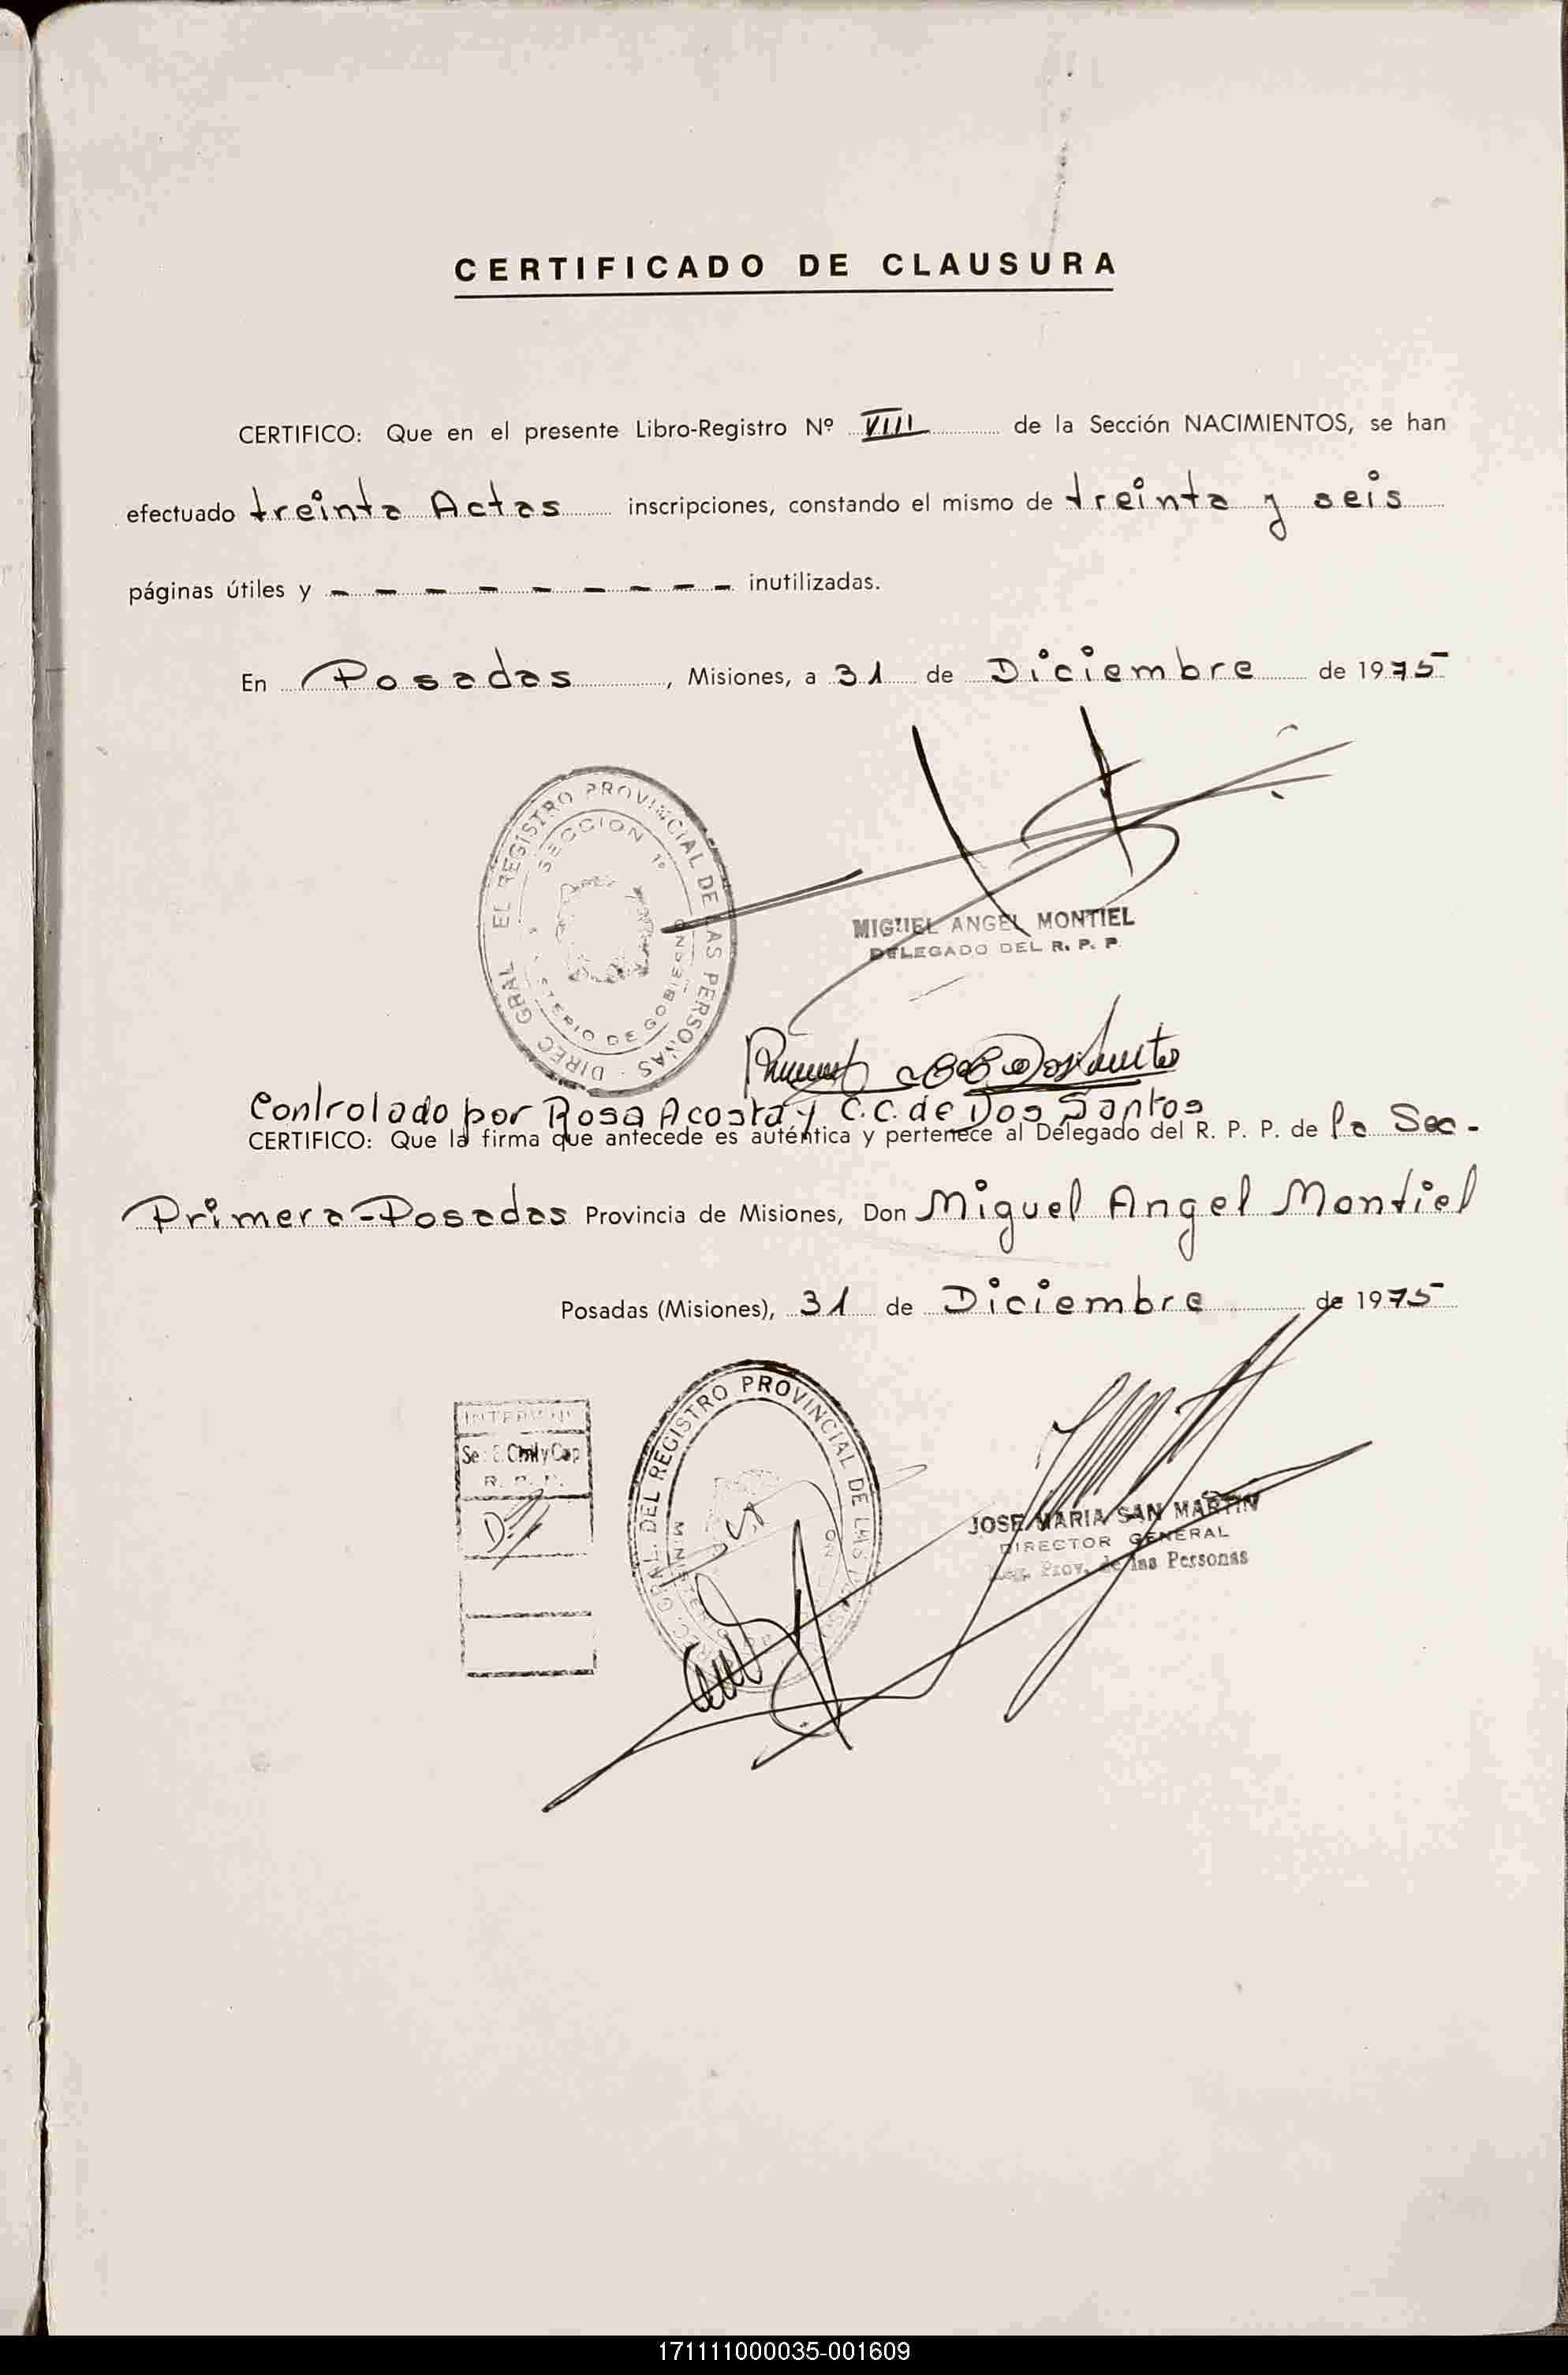 CERTIFICADO DE CLAUSURA
CERTIFICO: Que en el presente Libro-Registro Nº VIII de la Sección NACIMIENTOS, se han
efectuado treinta Actas inscripciones, constando el mismo de treinta y seis
páginas útiles y - - - - - - - - - inutilizadas.
En Posadas, Misiones, a 31 de Diciembre de 1975
DIREC. GRAL EL REGISTRO PROVINCIAL DE LAS PERSONAS
SECCION 1º
DE GOBIERNO
MIGUEL ANGEL MONTIEL
DELEGADO DEL R. P. P.
Controlado por Rosa Acosta y C.C. de Dos Santos
CERTIFICO: Que la firma que antecede es auténtica y pertenece al Delegado del R. P. P. de la Sec-
Primera-Posadas Provincia de Misiones, Don Miguel Angel Montiel
Posadas (Misiones), 31 de Diciembre de 1975
GRAL. DEL REGISTRO PROVINCIAL DE LAS
JOSE MARIA SAN MARTIN
DIRECTOR GENERAL
Reg. Prov. de las Personas
171111000035-001609